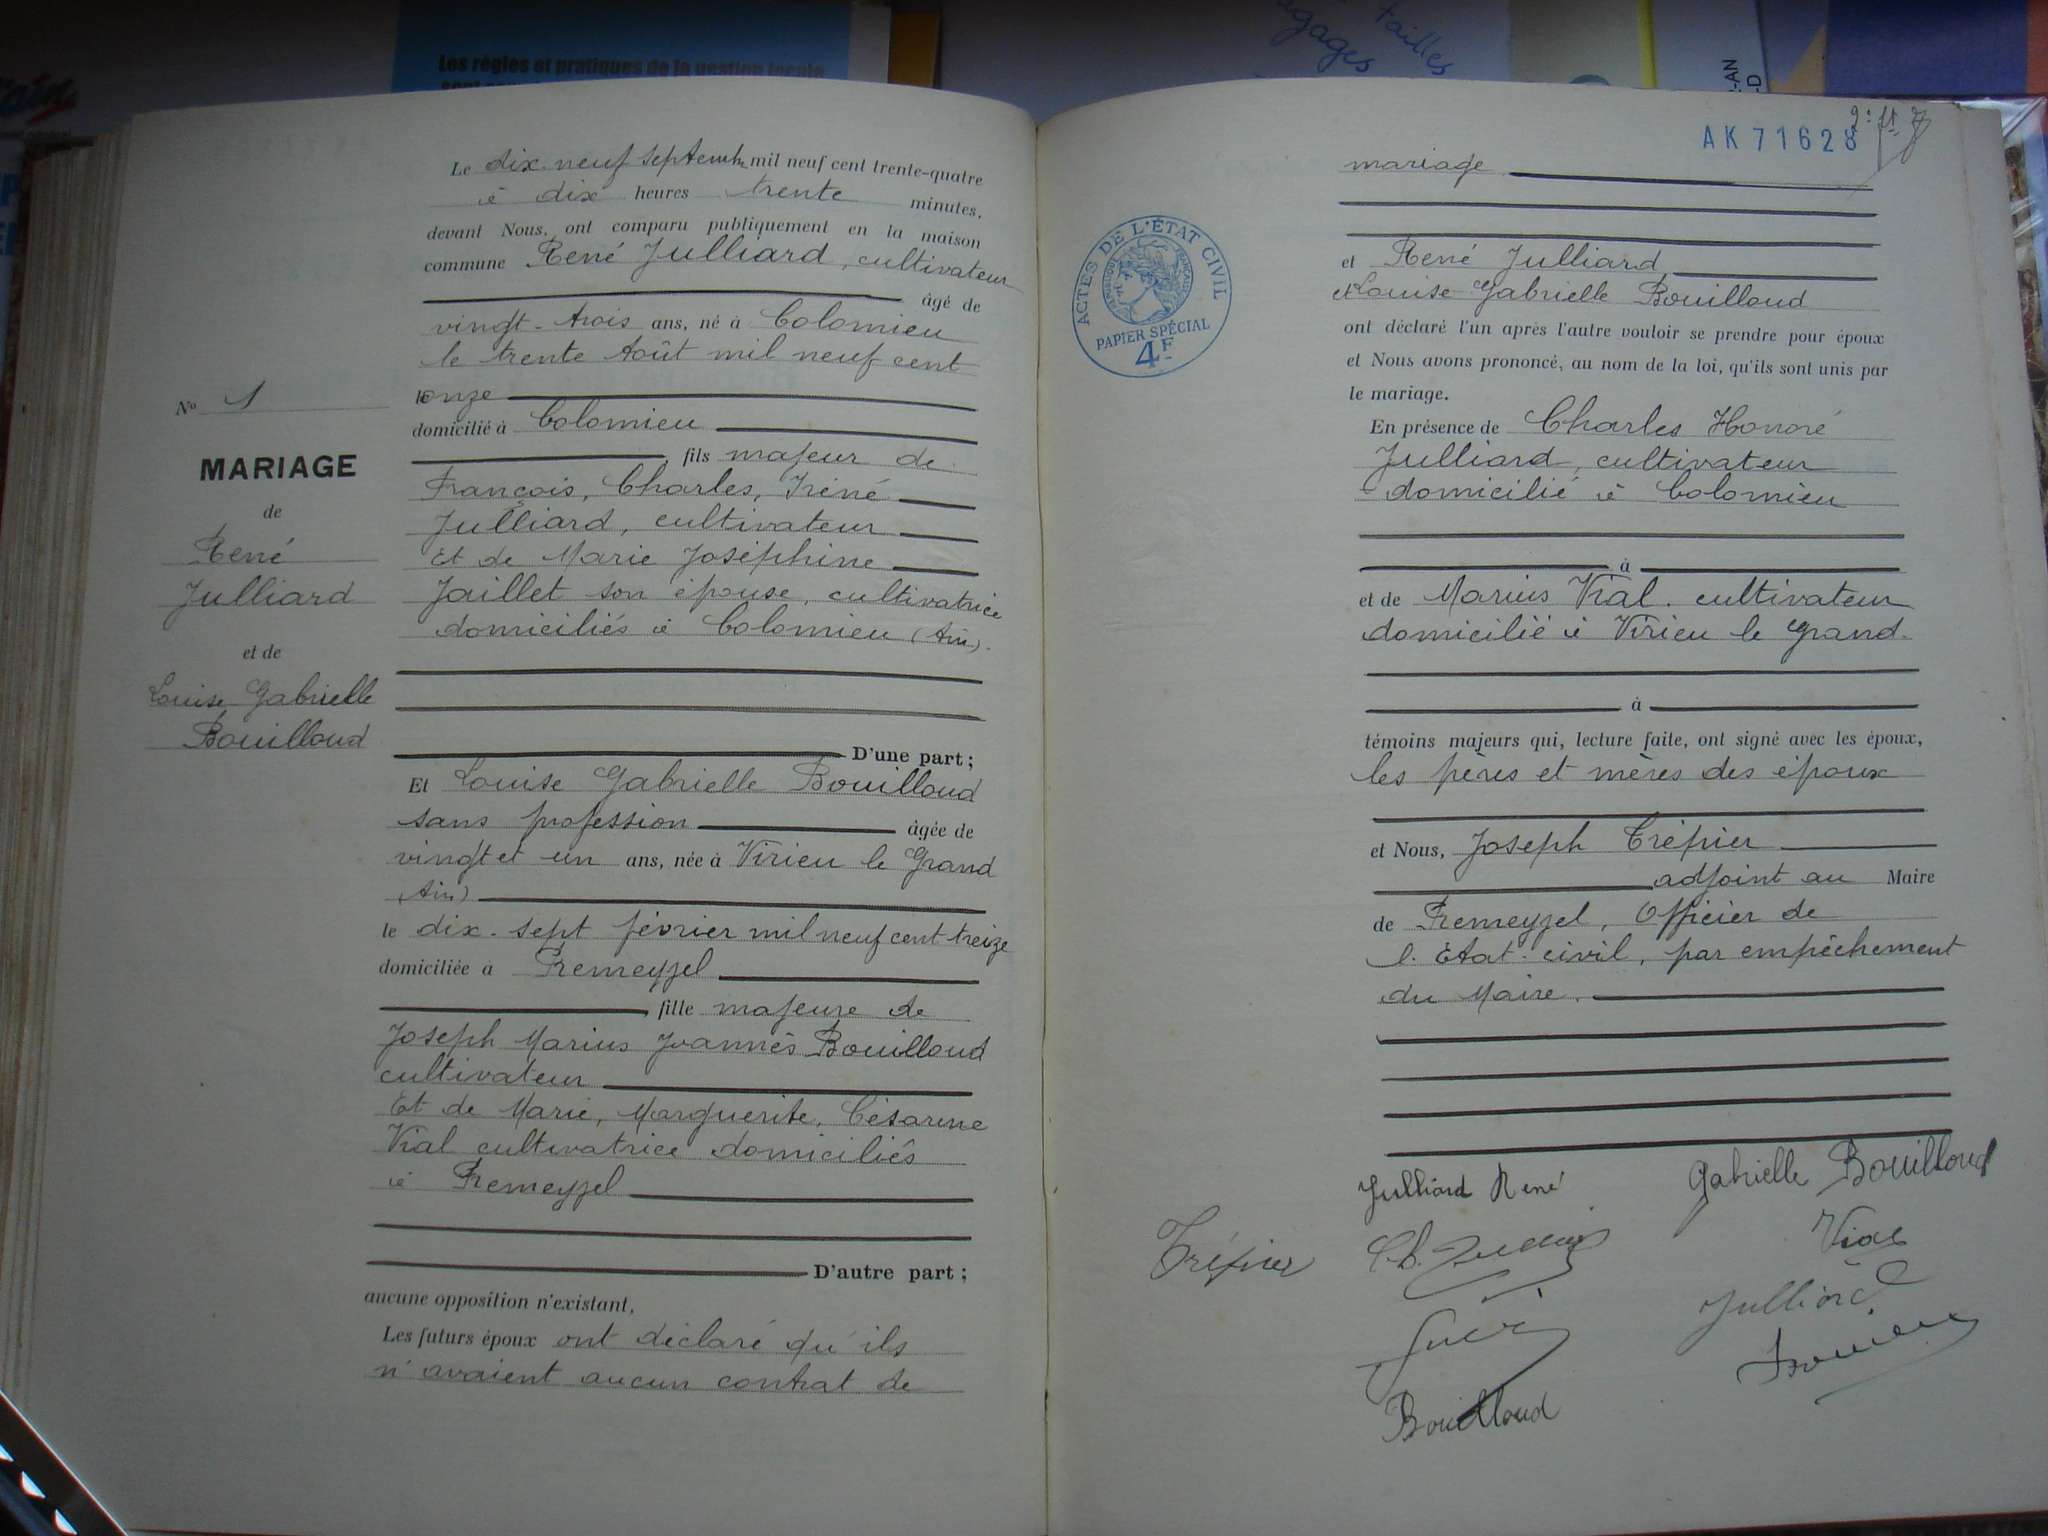 Les règles et pratiques de la gestion locale
tailles
gagages
-AN
-D
Le dix-neuf septembre mil neuf cent trente-quatre
à dix heures trente minutes,
devant Nous, ont comparu publiquement en la maison
commune René Julliard, cultivateur
âgé de
vingt-trois ans, né à Colomieu
le trente Août mil neuf cent
le onze
domicilié à Colomieu
, fils majeur de
François, Charles, Iréné
Julliard, cultivateur
Et de Marie Joséphine
Jaillet son épouse, cultivatrice
domiciliés à Colomieu (Ain).
D'une part ;
Et Louise Gabrielle Bouilloud
sans profession âgée de
vingt et un ans, née à Virieu le Grand
(Ain)
le dix-sept février mil neuf cent treize
domiciliée à Premeyzel
, fille majeure de
Joseph Marius Joannès Bouilloud
cultivateur
Et de Marie, Marguerite, Césarine
Vial cultivatrice domiciliés
à Premeyzel
D'autre part ;
aucune opposition n'existant,
Les futurs époux ont déclaré qu'ils
n'avaient aucun contrat de
No 1
MARIAGE
de
René
Julliard
et de
Louise Gabrielle
Bouilloud
AK 71628
ACTES DE L'ÉTAT CIVIL
RÉPUBLIQUE FRANÇAISE
PAPIER SPÉCIAL
4F
mariage
et René Julliard
et Louise Gabrielle Bouilloud
ont déclaré l'un après l'autre vouloir se prendre pour époux
et Nous avons prononcé, au nom de la loi, qu'ils sont unis par
le mariage.
En présence de Charles Honoré
Julliard, cultivateur
domicilié à Colomieu
à
et de Marius Vial. cultivateur
domicilié à Virieu le Grand.
à
témoins majeurs qui, lecture faite, ont signé avec les époux,
les pères et mères des époux
et Nous, Joseph Trépier
adjoint au Maire
de Premeyzel, Officier de
l'Etat-civil, par empêchement
du Maire.
Julliard René Gabrielle Bouilloud
Trépier Vial
Julliard
Bouilloud